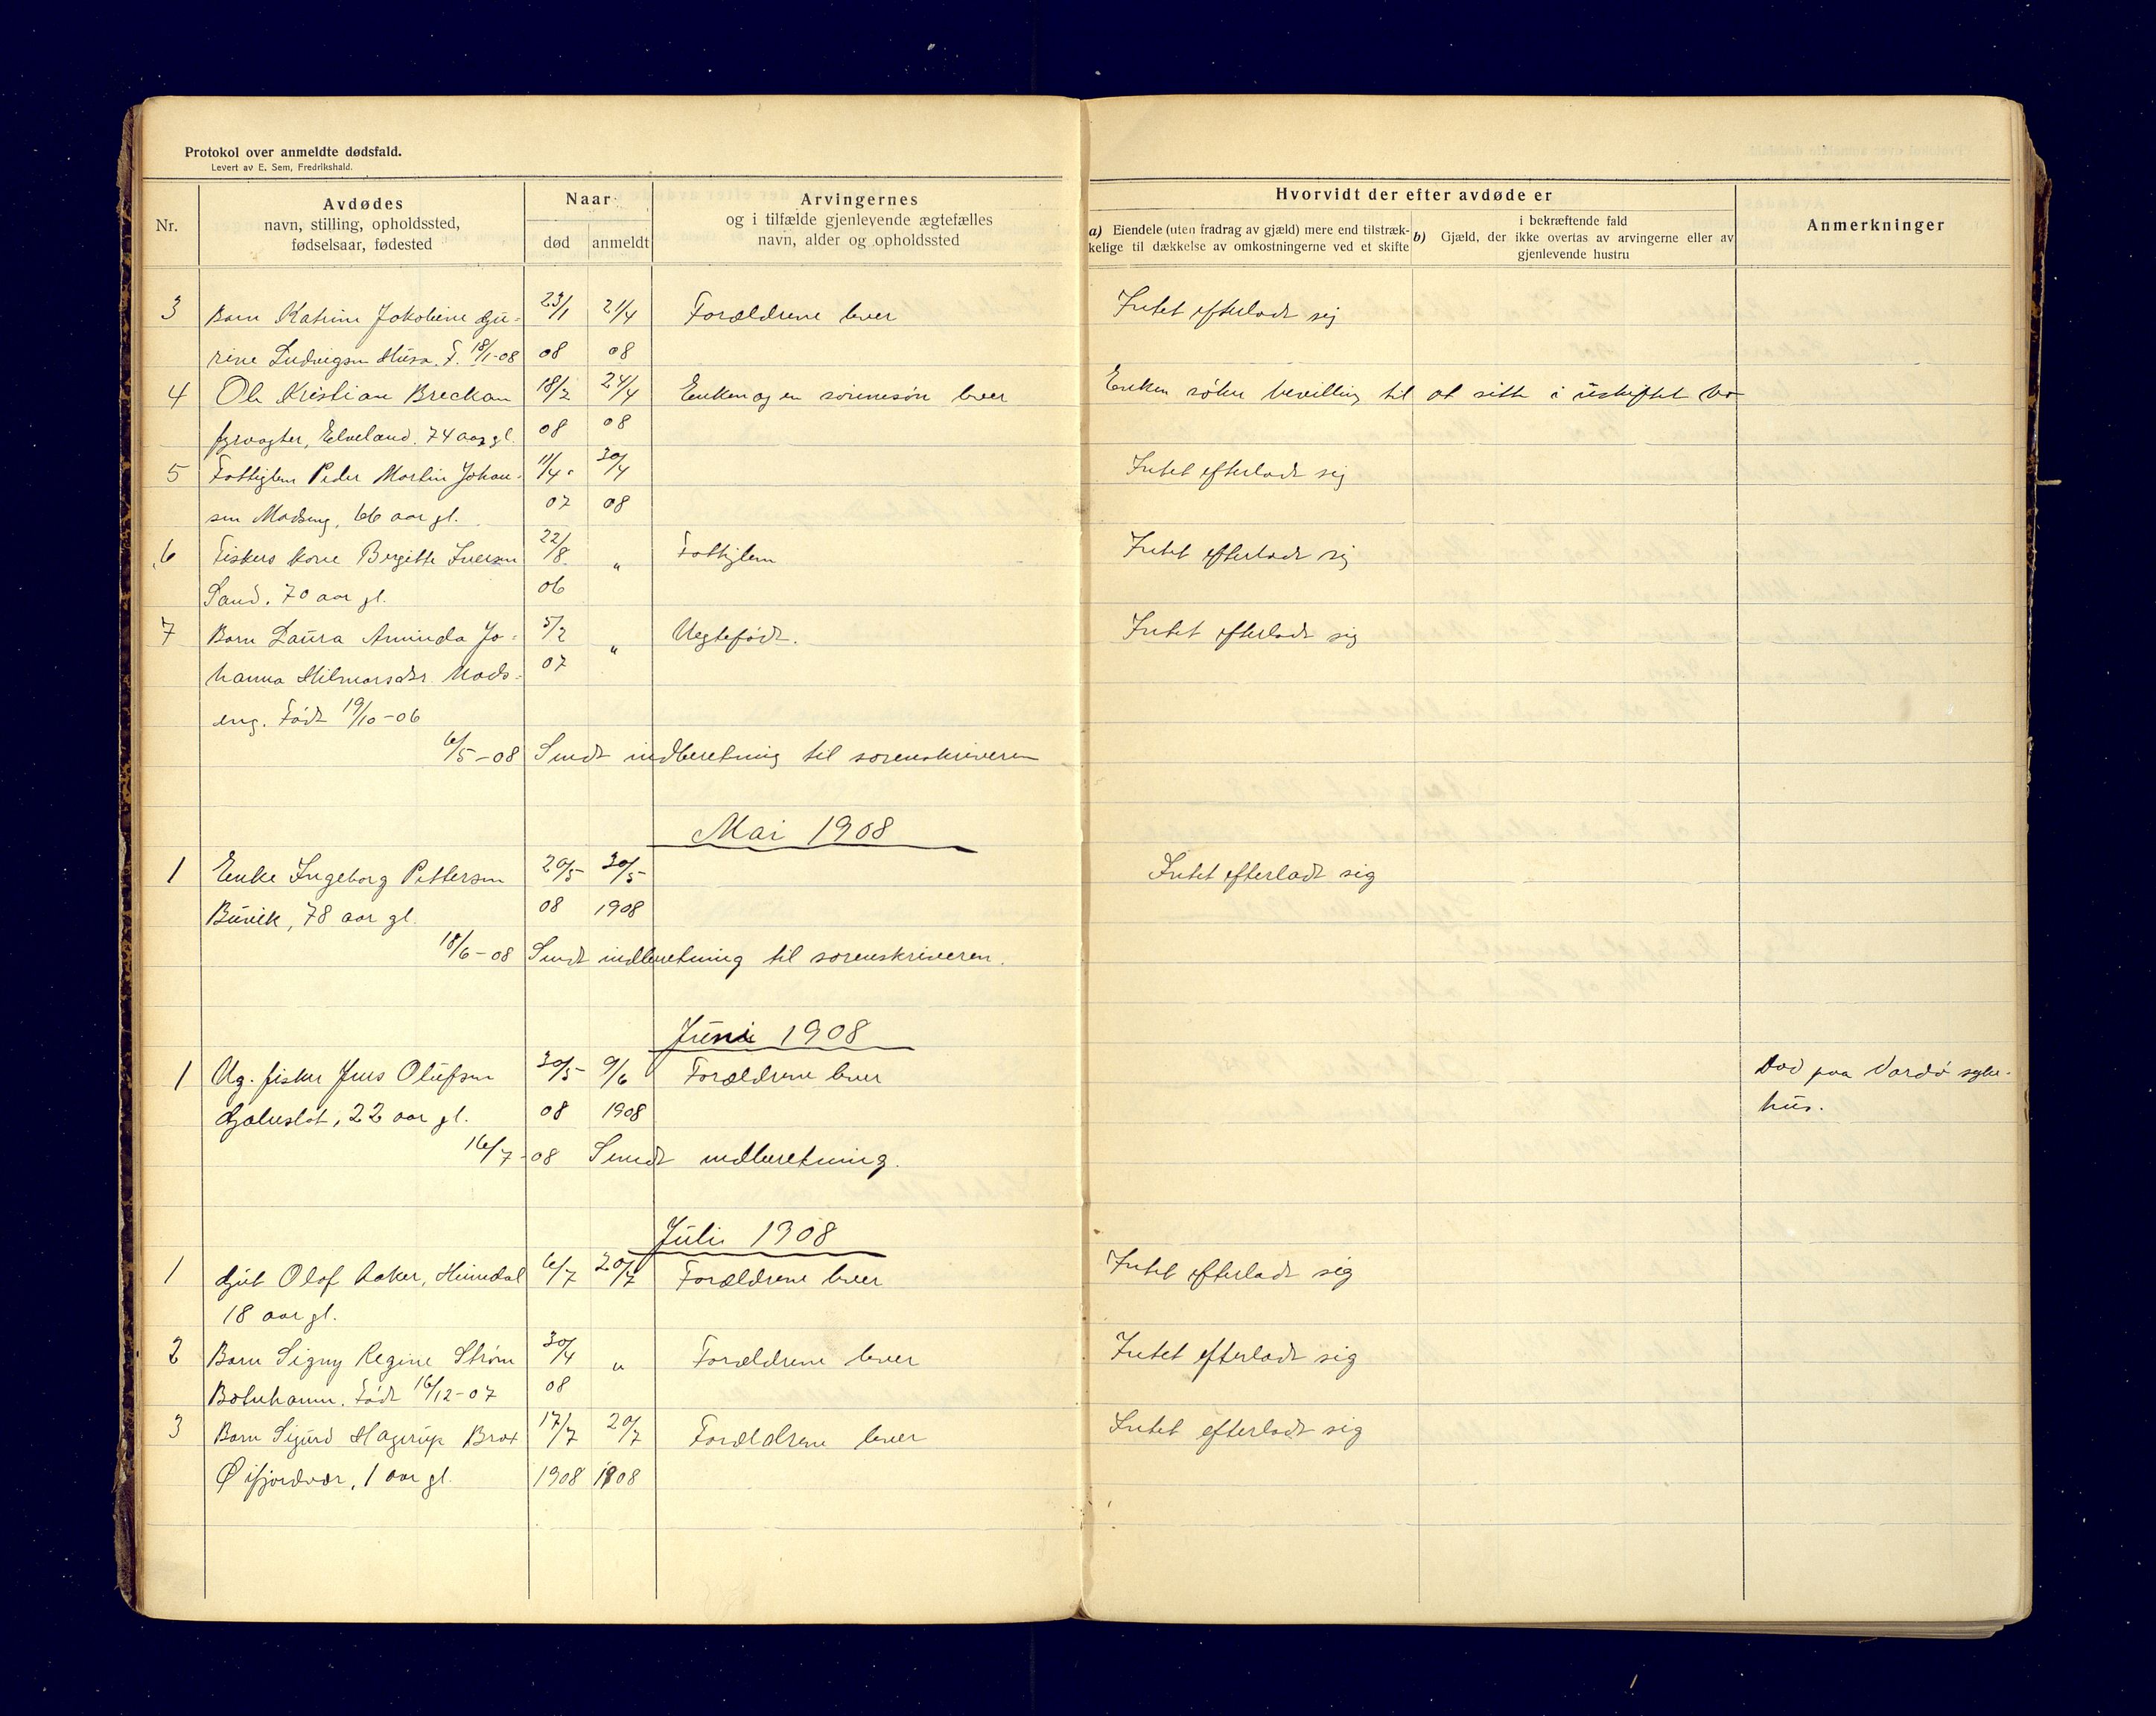 Protokol over anmeldte dødsfald.
Levert av E. Sem, Fredrikshald.
Nr.
Avdødes
navn, stilling, opholdssted,
fødselsaar, fødested
Naar
død anmeldt
Arvingernes
og i tilfælde gjenlevende ægtefælles
navn, alder og opholdssted
Hvorvidt der efter avdøde er
a) Eiendele (uten fradrag av gjæld) mere end tilstræk-
kelige til dækkelse av omkostningerne ved et skifte
i bekræftende fald
b) Gjæld, der ikke overtas av arvingerne eller av
gjenlevende hustru
Anmerkninger
3 Barn Katrine Jakobine Gu- 23/1 21/4 Forældrene lever Intet efterladt sig
rine Ludvigsen Husø. F. 18/1-08 08 08
4 Ole Kristian Breckan 18/2 24/4 Enken og en sønnesøn lever Enken søker bevilling til at sitte i uskiftet bo
fyrvogter, Elveland. 74 aar gl. 08 08
5 Fattiglem Peder Martin Johan- 11/4 30/4 Intet efterladt sig
sen Madseng, 66 aar gl. 07 08
6 Fiskers kone Birgitte Iversen 22/8 " Fattiglem Intet efterladt sig
Sand. 70 aar gl. 06
7 Barn Laura Aminda Jo- 5/2 " Uegtefødt. Intet efterladt sig
hanna Hilmarsdtr Mads- 07
eng. Født 19/10-06
6/5-08 Sendt indberetning til sorenskriveren
Mai 1908
1 Enke Ingeborg Pettersen 20/5 30/5 Intet efterladt sig
Buvik, 78 aar gl. 08 1908
18/6-08 Sendt indberetning til sorenskriveren.
Juni 1908
1 Ug. fisker Jens Olufsen 30/5 9/6 Forældrene lever Død paa Vardø syke-
22 aar gl. 08 1908 hus.
16/7-08 Sendt indberetning.
Juli 1908
1 Gut Olaf Aaker, Heimdal 6/7 20/7 Forældrene lever Intet efterladt sig
18 aar gl.
2 Barn Signy Regine Strøm 30/4 " Forældrene lever Intet efterladt sig
Botnhamn. Født 16/12-07 08
3 Barn Sigurd Hagerup Brox 17/7 20/7 Forældrene lever Intet efterladt sig
Øifjordvær, 1 aar gl. 1908 1908